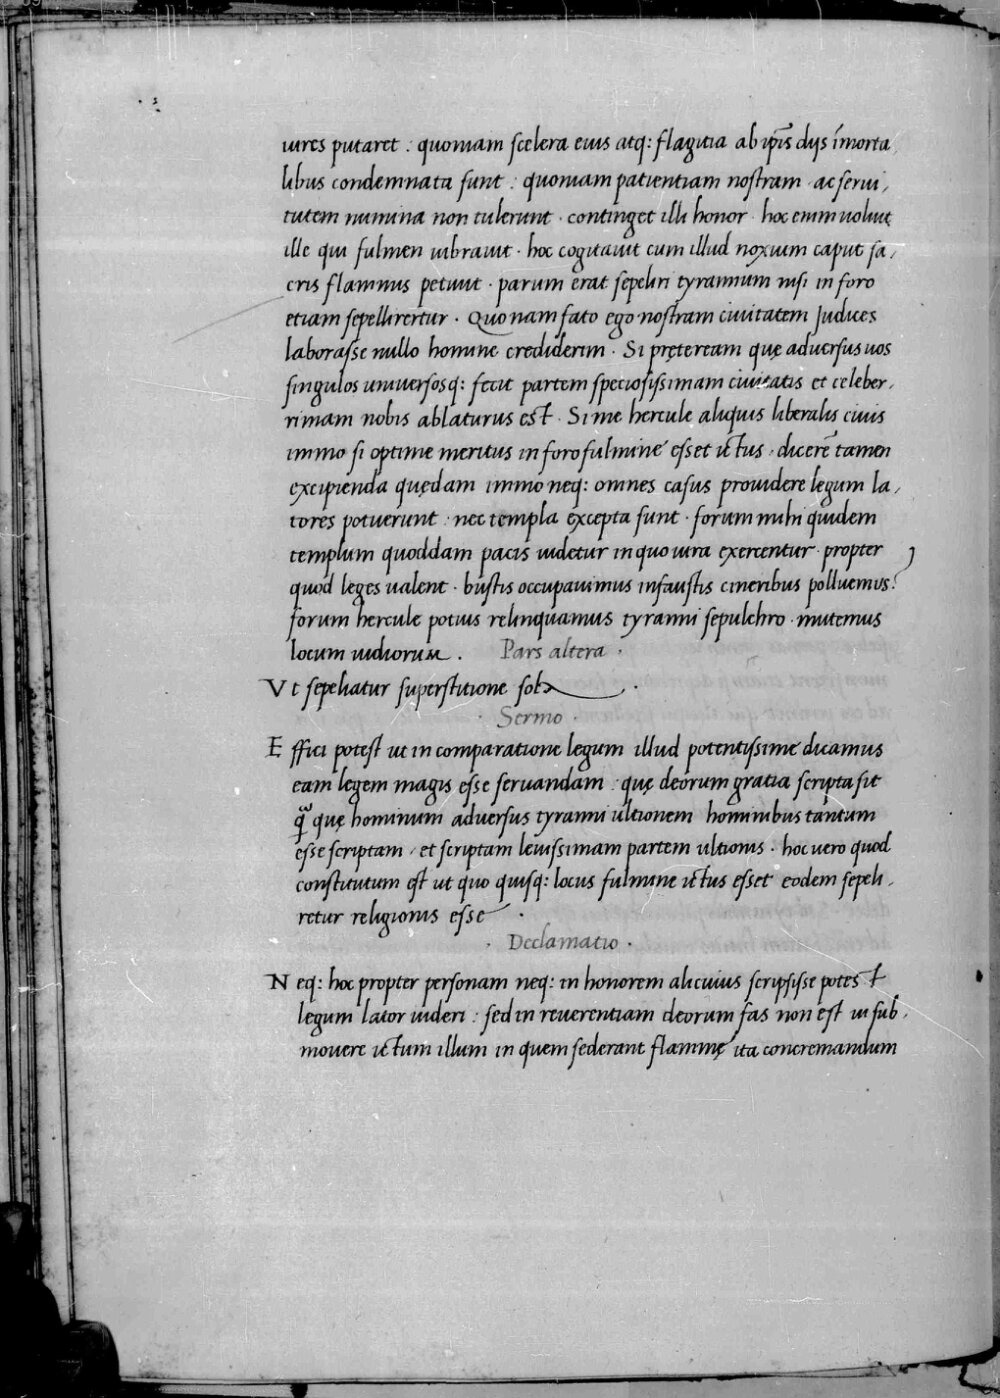 iures putaret : quoniam scelera eius atq: flagitia ab ip̄is dijs īmorta,
libus condemnata sunt : quoniam patientiam nostram · ac serui,
tutem numina non tulerunt · continget illi honor · hoc enim uoluit
ille qui fulmen uibrauit · hoc cogitauit cum illud noxium caput sa,
cris flammis petiuit · parum erat sepeliri tyrannum nisi in foro
etiam sepellirertur · Quo nam fato ego nostram ciuitatem Judices
laborasse nullo homine crediderim · Si pręteream quę aduersus uos
singulos uniuersosq: fecit partem speciosissimam ciuitatis et celeber,
rimam nobis ablaturus est · Si me hercule aliquis liberalis ciuis
immo si optime meritus in foro fulmine esset ictus · dicerē tamen
excipienda quędam immo neq: omnes casus prouidere legum la,
tores potuerunt : nec templa excepta sunt · forum mihi quidem
templum quoddam pacis uidetur in quo iura exercentur · propter
quod leges ualent · bustis occupauimus infaustis cineribus polluemus?
forum hercule potius relinquamus tyranni sepulchro · mutemus
locum iudiorum . Pars altera ·
Vt sepeliatur superstitione sola .
· Sermo ·
Effici potest ut in comparatione legum illud potentissime dicamus
eam legem magis esse seruandam : quę deorum gratia scripta sit
q̃ quę hominum aduersus tyranni ultionem hominibus tantum
esse scriptam · et scriptam leuissimam partem ultionis · hoc uero quod
constitutum est ut quo quisq: locus fulmine ictus esset eodem sepeli,
retur religionis esse ·
· Declamatio ·
Neq: hoc propter personam neq: in honorem alicuius scripsisse potest
legum lator uideri : sed in reuerentiam deorum fas non est ui sub,
mouere ictum illum in quem sederant flammę ita concremandum